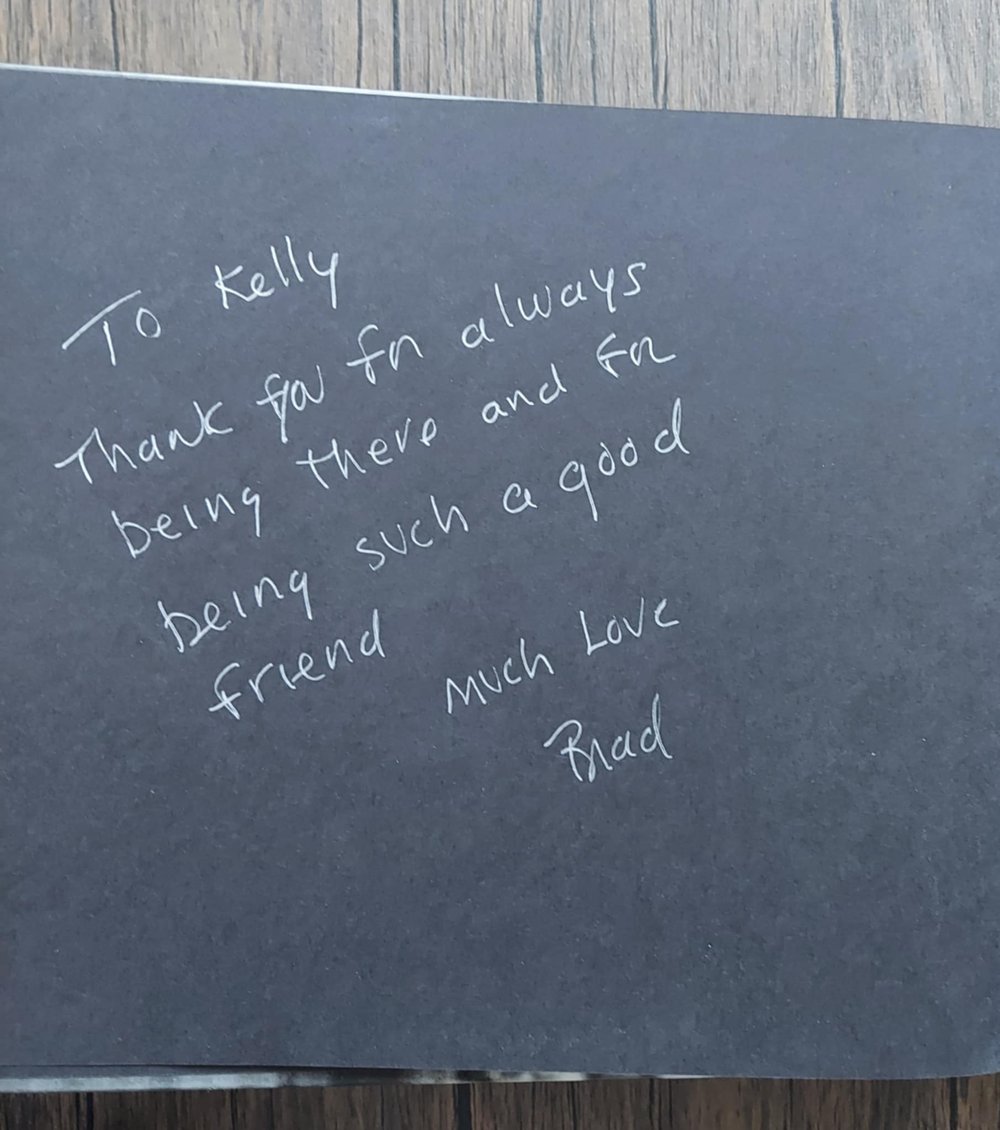 To Kelly
Thank you for always
being there and for
being such a good
friend
Much Love
Brad